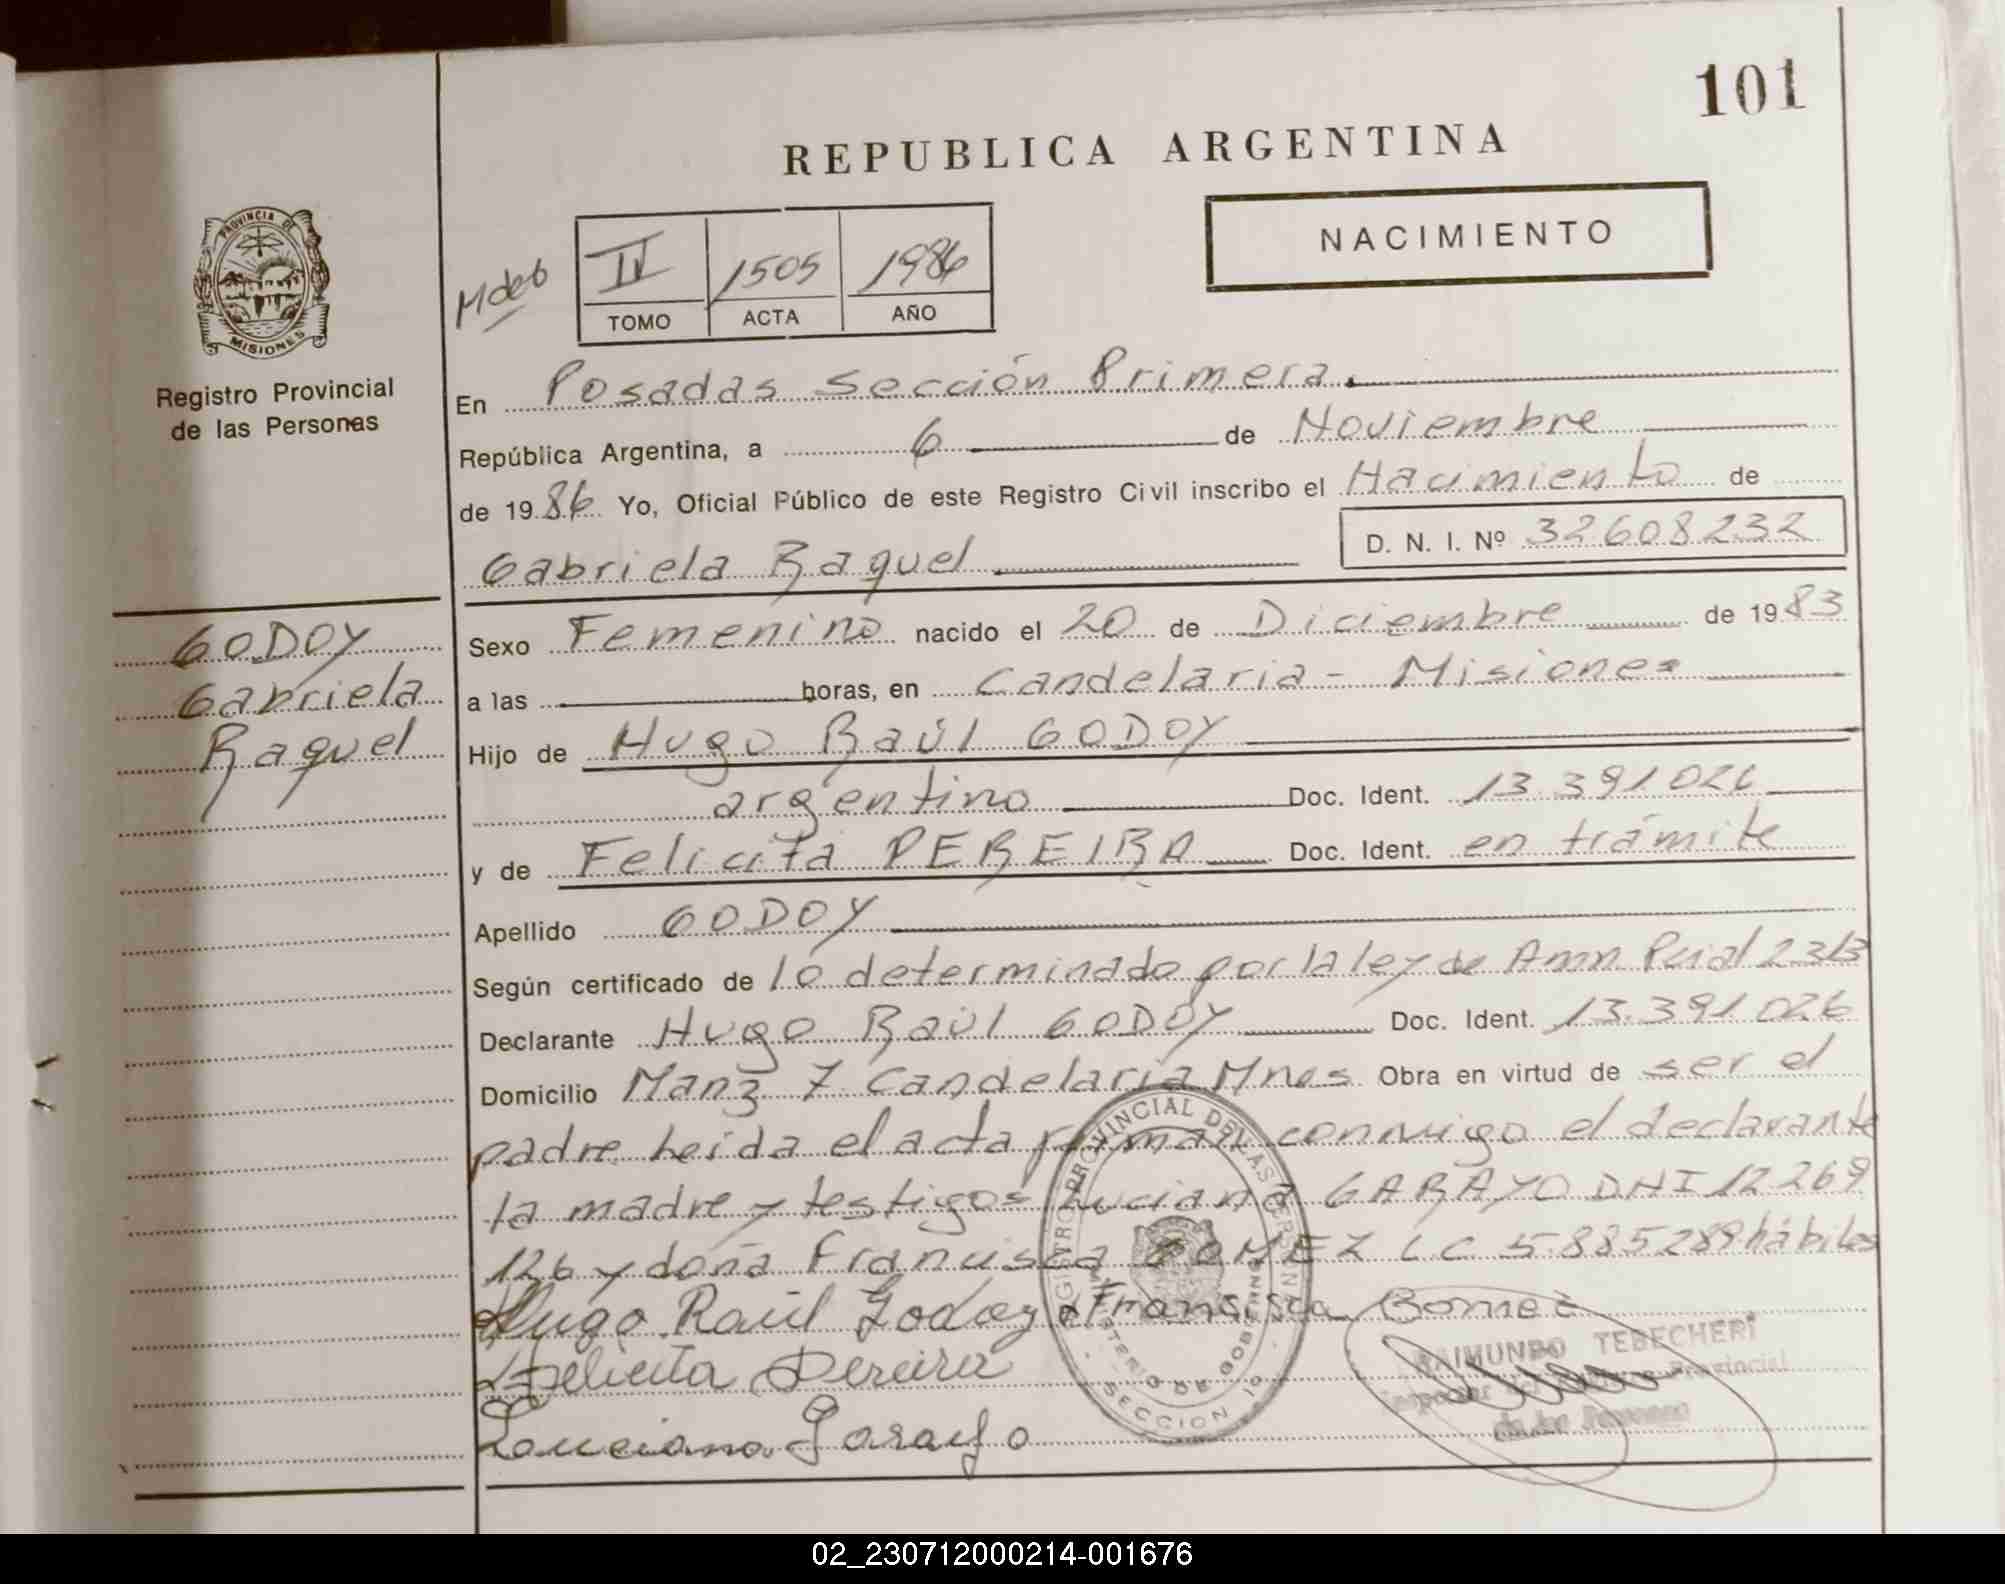 101
REPUBLICA ARGENTINA
PROVINCIA DE MISIONES
Registro Provincial
de las Personas
NACIMIENTO
IV 1505 1986
TOMO ACTA AÑO
En Posadas Sección Primera.
República Argentina, a 6 de Noviembre
de 1986 Yo, Oficial Público de este Registro Civil inscribo el Nacimiento de
D. N. I. Nº 32608232
Gabriela Raquel
GODOY
Gabriela
Raquel
Sexo Femenino nacido el 20 de Diciembre de 1983
a las horas, en Candelaria - Misiones
Hijo de Hugo Raúl GODOY
argentino Doc. Ident. 13.391026
y de Felicita PEREIRA Doc. Ident. en trámite
Apellido GODOY
Según certificado de lo determinado por la ley de Amn. 
Declarante Hugo Raúl GODOY Doc. Ident. 13.391026
Domicilio Manz 7 Candelaria Mnes Obra en virtud de ser el
padre leida el acta firman conmigo el declarante
la madre y testigos Luciana GARAYO DNI 12269
126 y doña Francisca GOMEZ LC 5.885289 hábiles
Hugo Raúl Godoy Francisca Gomez
Felicita Pereira
Luciana Garayo
REGISTRO PROVINCIAL DE LAS PERSONAS
MINISTERIO DE GOBIERNO
SECCION 1º
RAIMUNDO TEBECHERI
Inspector del Registro Provincial
de las Personas
02_230712000214-001676